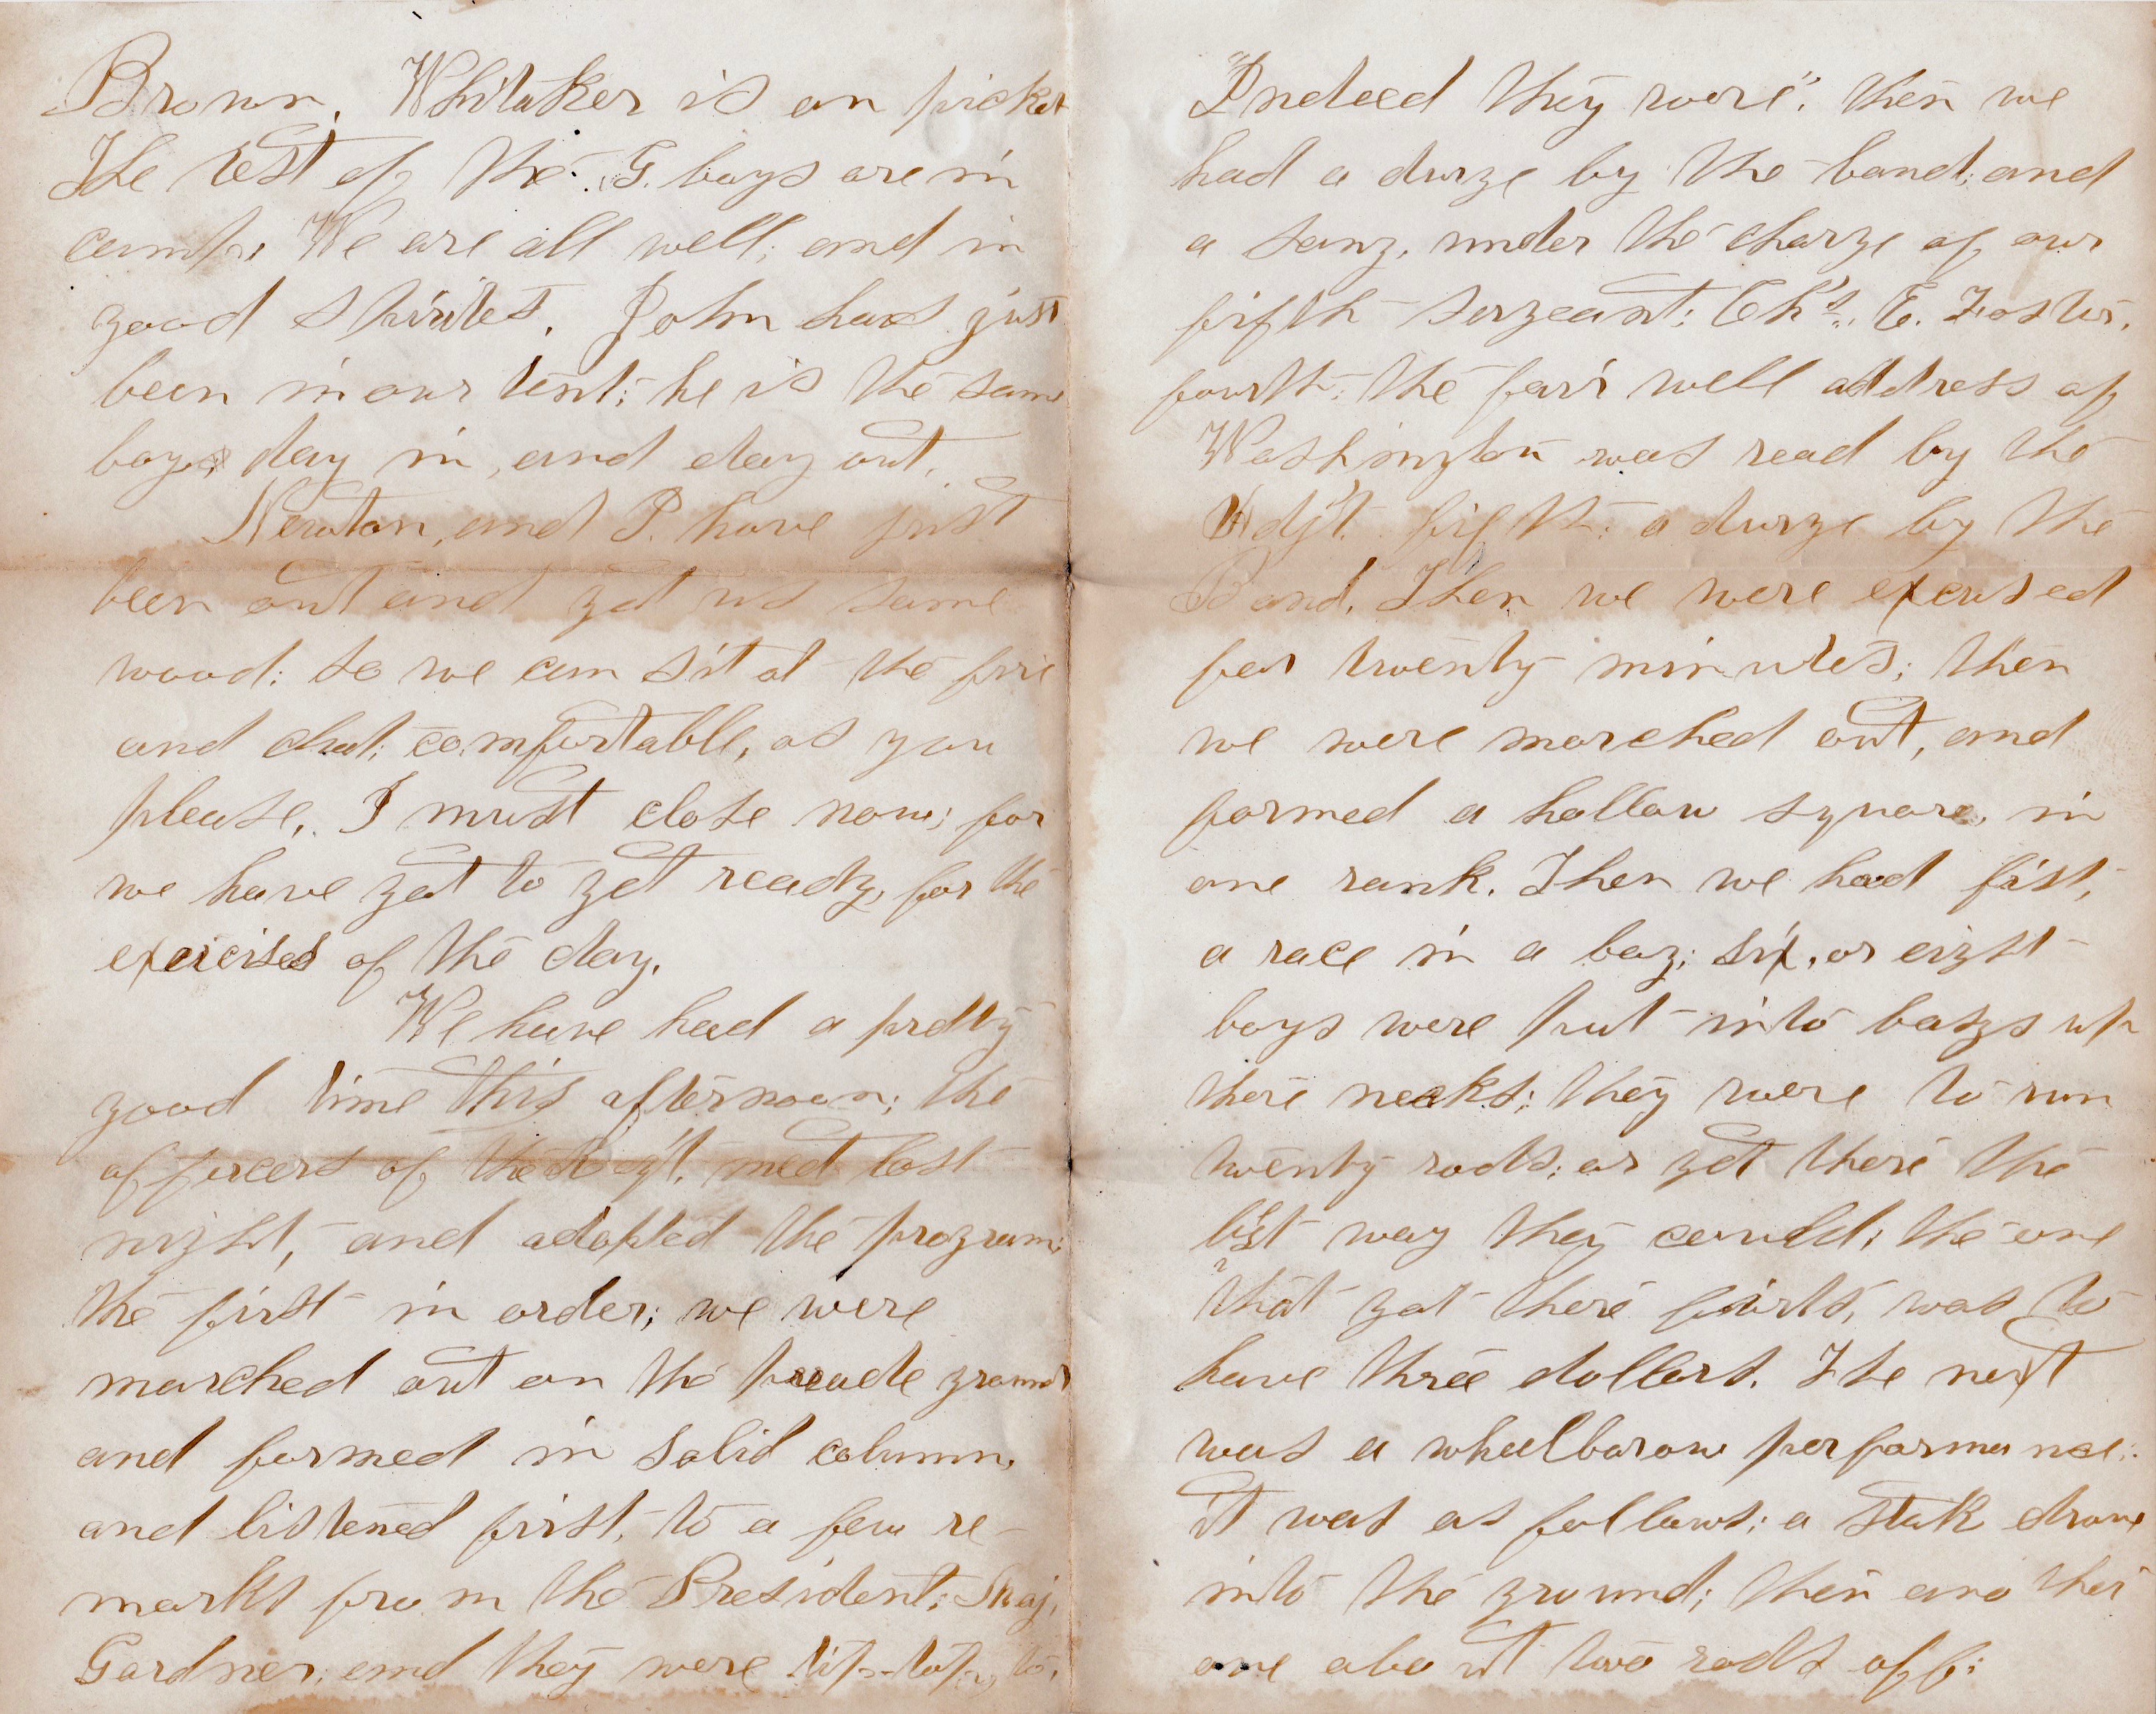 Brown. Whitaker is on picket
The rest of the G. boys are in
camp. We are all well; and in
good spirites. John has just
been in our tent; he is the same
boy, day in, and day out.
Newton, and I. have just
been out and got us some
wood: so we can sit at the fire
and chat; comfortable, as you
please. I must close now; for
we have got to get ready, for the
exercises of the day.
We have had a pretty
good time this afternoon; the
officers of the Reg't. met last
night, and adopted the program;
the first in order; we were
marched out on the parade ground
and formed in solid column,
and listened first, to a few re-
marks from the President; Maj.
Gardner; and they were tip-top, to.
Indeed they were". then we
had a durge by the band; and
a song, under the charge of our
fifth sergeant; Chs. E. Foster.
fourth; the fair well address of
Washington was read by the
Adj't. fifth; a durge by the
Band. Then we were excused
for twenty minutes; then
we were marched out, and
formed a hollow square, in
one rank. Then we had fist,
a race in a bag; six, or eight
boys were put into bags up
there necks; they were to run
twenty rods; or get there the
best way they could; the one
that got there firts, was to
have three dollars. The next
was a wheelbarow performance;
it was as follows; a stak drove
into the ground; then another
one about two rods off;